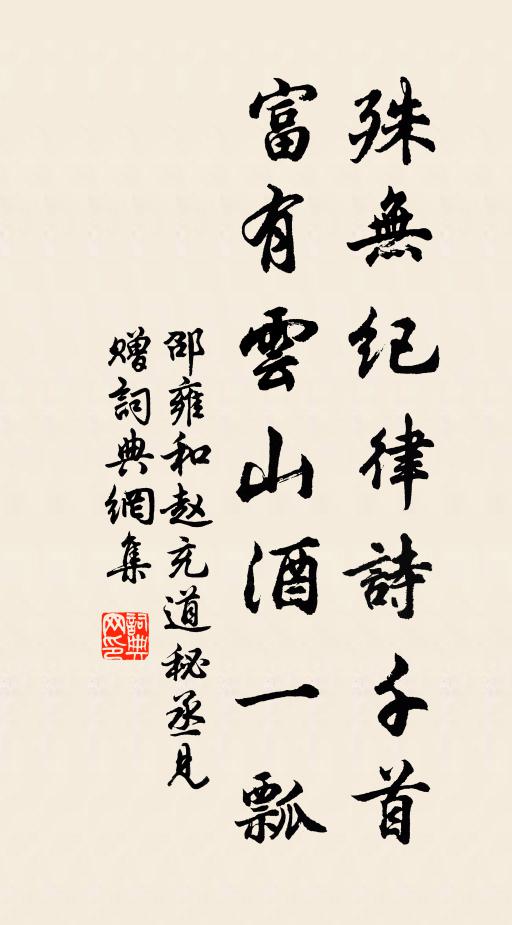 殊無紀律詩千首
富有雲山酒一瓢
邵雍和赵充道秘丞見
贈詞典網集
詞典网印